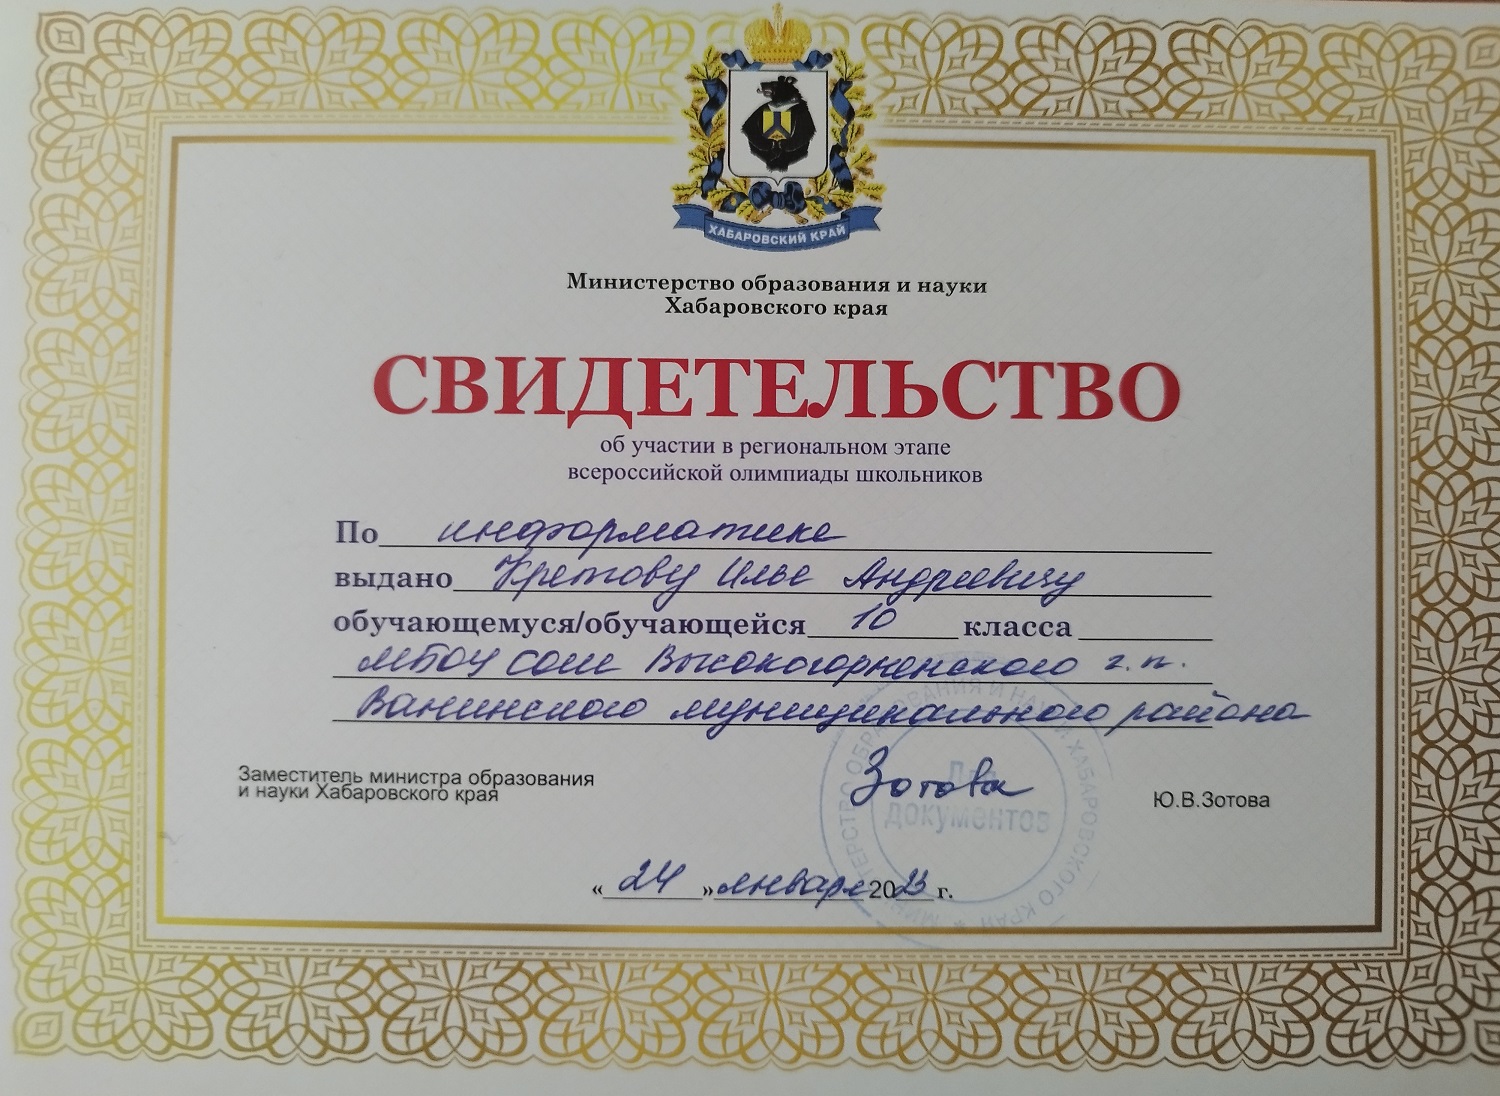 ХАБАРОВСКИЙ КРАЙ
Министерство образования и науки
Хабаровского края
СВИДЕТЕЛЬСТВО
об участии в региональном этапе
всероссийской олимпиады школьников
По информатике
выдано Кретову Илье Андреевичу
обучающемуся/обучающейся 10 класса
МБОУ СОШ Высокогорненского г.п.
Ванинского муниципального района
Заместитель министра образования
и науки Хабаровского края
Зотова
Ю.В.Зотова
Для
документов
МИНИСТЕРСТВО ОБРАЗОВАНИЯ И НАУКИ ХАБАРОВСКОГО КРАЯ
« 24 » января 2023 г.